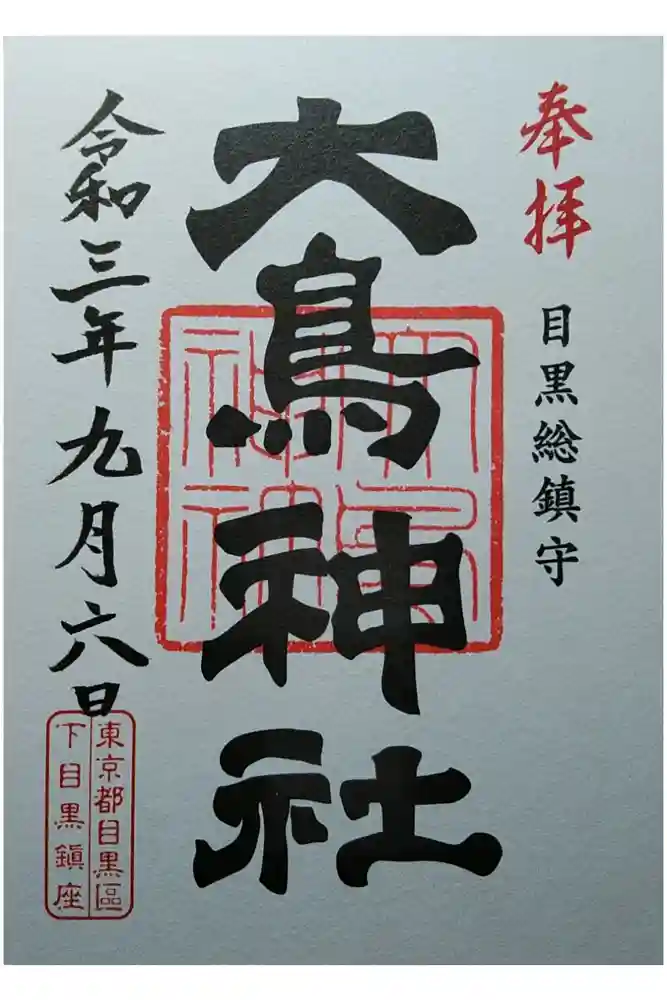 奉拝
目黒総鎮守
大鳥神社
大鳥神社
令和三年九月六日
東京都目黒區
下目黒鎭座